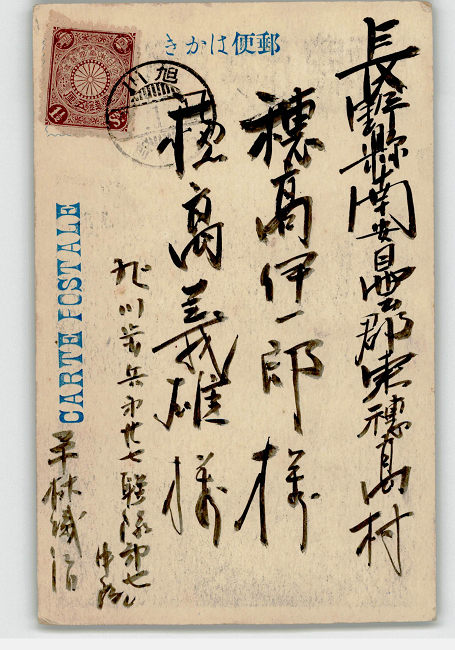 郵便はかき
長野縣南安曇郡東穂高村
穗高伊一郎様
穂高義雄様
旭川歩兵第廿七聯隊第七
中隊
平林
CARTE POSTALE
旭川
1½